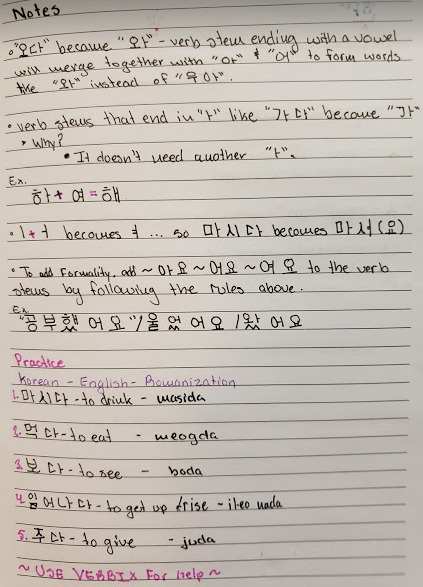 Notes
• "오다" became "와" - verb stem ending with a vowel
will merge together with "아" & "어" to form words
like "와" instead of "우아".
• verb stems that end in "ㅏ" like "가다" become "가"
• Why?
• It doesn't need another "ㅏ".
Ex.
하 + 여 = 해
• ㅣ + ㅓ becomes ㅕ ... so 마시다 becomes 마셔(요)
• To add Formality, add ~아요 ~어요 ~여요 to the verb
stems by following the rules above.
Ex.
"공부했어요"/울었어요/왔어요
Practice
Korean - English - Romanization
1. 마시다 - to drink - masida
2. 먹다 - to eat - meogda
3. 보다 - to see - boda
4. 일어나다 - to get up /rise - ileo nada
5. 주다 - to give - juda
~ USE VERBIX For Help ~